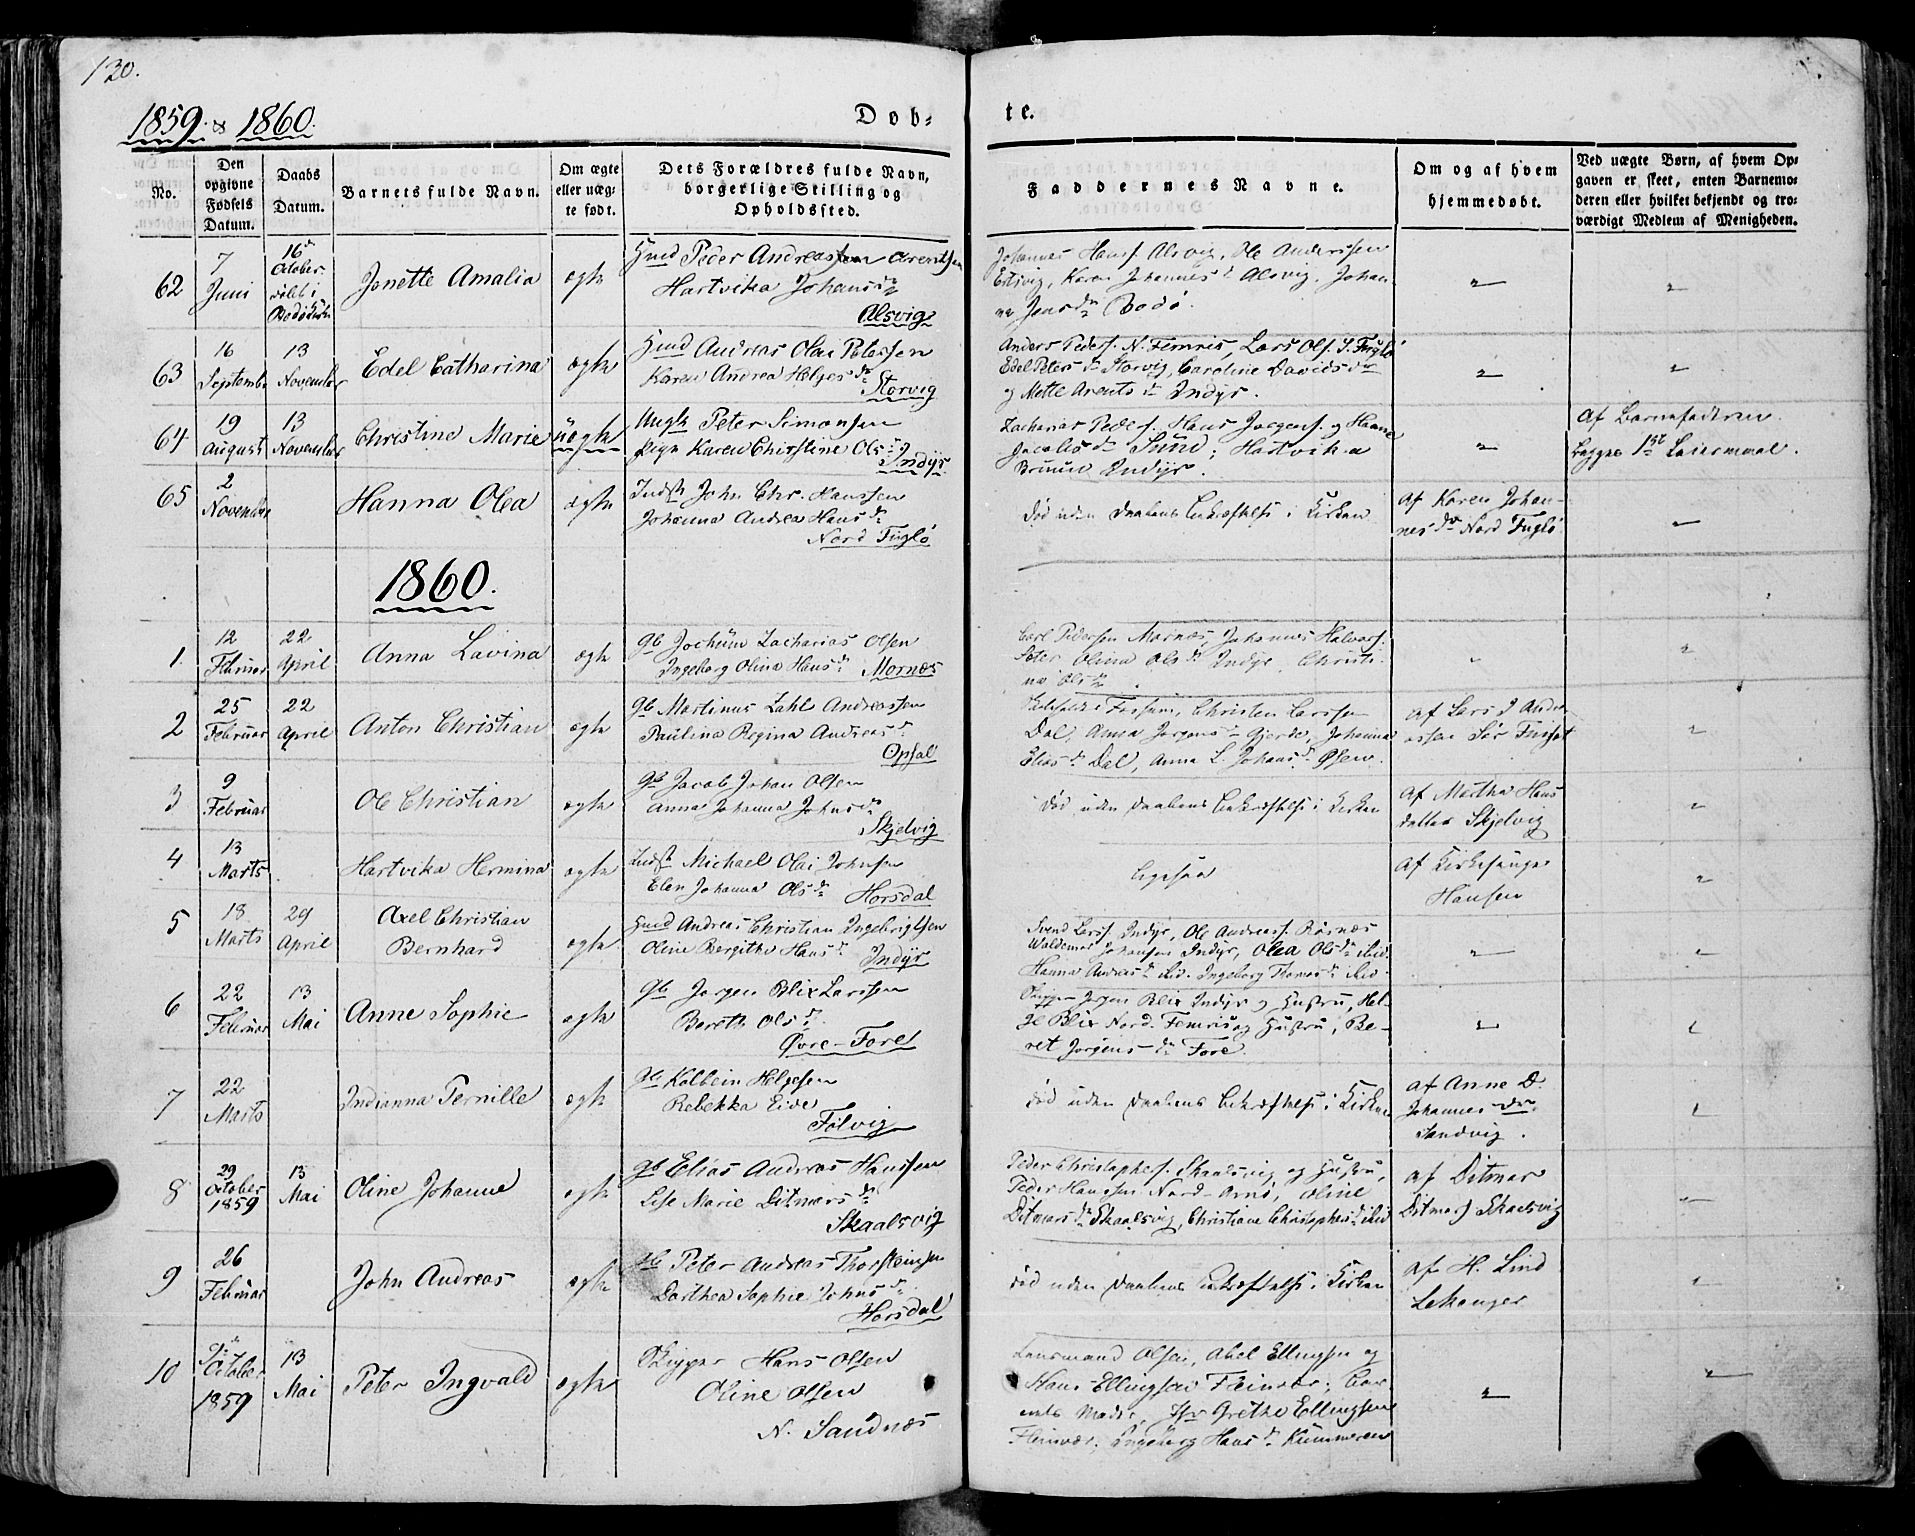 130.
1859. & 1860.
Døb-
te.
No.
Den
opgivne
Fødsels
Datum.
Daabs
Datum.
Barnets fulde Navn.
Om ægte
eller uæg-
te født.
Dets Forældres fulde Navn,
borgerlige Stilling og
Opholdssted.
Faddernes Navne.
Om og af hvem
hjemmedøbt.
Ved uægte Børn, af hvem Op-
gaven er skeet, enten Barnemo-
deren eller hvilket bekjendt og tro-
værdigt Medlem af Menigheden.
62
7
Juni
16
October
døbt i
Jonette Amalia
ægte
Huusmd Peder Andreassen Arentsen
Hartvika Johansd
Alsvig
Johannes Hansf. Alsvig, Ole Anderssen
Johannesd Alsvig, Johan-
na Jensd Bodø.
"
"
63
16
September
13
November
Edel Catharina
ægte
Huusmd Andreas Olai Petersen
Karen Andrea Helgesd
Storvig
Anders Pedersf. N. Femris, Lars Olsf. S. Fuglø
Edel Petersd Storvig, Caroline Davidsdr
og Mette Arentsd Indyr.
"
"
64
19
August
13
November
Christine Marie
uægte
Ungk Peter Simonsen
Pige Karen Christine Olsd
Indyr
Zacharias Pedersf. Hans Jørgensf. og Hanna
Jacobsd Sund, Hartvika
Indyr.
"
Af Barnefaderen.
Begges 1ste Leiermaal.
65
2
November
Hanna Olea
ægte
Indst John Chr. Hanssen
Johanna Andrea Hansd
Nord Fuglø
Død uden Daabens Bekræftelse i Kirken
Af Karen Johan-
nesdr Nord Fuglø
"
1860.
1.
12
Februar
22
April
Anna Lavina
ægte
Gb Jochum Zacharias Olsen
Ingeborg Olina Hansd Mornæs
Carl Pedersen Mornæs, Johannes Halvorsf.
Olina Olsd Indyr, Christi-
na Olsd
"
"
2
25
Februar
22
April
Anton Christian
ægte
Gb Martinus Dahl Andreassen
Paulina Regina Andreasd
Opsal
Christen Larssen
Dal, Anna Jørgensd Gjerde, Johanna
Eliasd Dal, Anna L. Johansd
Af Lars J Andre-
assen Sør
"
3
9
Februar
Ole Christian
ægte
Gb Jacob Johan Olsen
Anna Johanna Johnsd
Skjelvig
Død uden Daabens Bekræftelse i Kirken
Af Martha Hans
datter Skjelvig
"
4
13
Marts
Hartvika Hermina
ægte
Indst Michael Olai Johnsen
Elen Johanna Olsd Horsdal
Ligesaa
Af Kirkesanger
Hansen
"
5
18
Marts
29
April
Axel Christian
Bernhard
ægte
Huusmd Andreas Christian Ingebrigtsen
Oline Bergithe Hansd Indyr
Svend Larsf. Indyr, Ole Andreasf. Rörnæs
Waldemar Johansen Indyr, Olea Olsd ibid.
Hanna Andreasd ibid. Ingeborg Thomasd ibid.
"
"
6
22
Februar
13
Mai
Anne Sophie
ægte
Gb Jørgen Blix Larssen
Bereth Olsd
Øvre-Fore
Skipper Jørgen Blix Indyr og Hustru, Hel-
ge Blix Nord. Femris og Hustru, Be-
ret Jørgensd Fore.
"
"
7
22
Marts
Indianna Pernille
ægte
Gb Kolbein Helgesen
Rebekka Eide
Følvig
Død uden Daabens Bekræftelse i Kirken
Af Anne D.
Johannesdr
Sandvig.
"
8
29
October
1859
13
Mai
Oline Johanne
ægte
Gb Elias Andreas Hanssen
Else Marie Ditmersd
Skaalsvig
Peder Christophersf. Skaalsvig og Hustru,
Peder Hanssen Nord-Arnø, Oline
Ditmarsd Skaalsvig, Christiane Christophersd ibid
Af Ditmar
Ditmarsf Skaalsvig
"
9
26
Februar
John Andreas
ægte
Gb Peter Andreas Thorsteinsen
Dorthea Sophie Johnsd
Horsdal
Død uden Daabens Bekræftelse i Kirken
Af H. Lind
Lekanger
"
10
October
1859
13
Mai
Peter Ingvald
ægte
Skipper Hans Olsen
Oline Olsen
N. Sandnæs
Lensmand Olsen, Abel Ellingsen og
Hans Ellingsen Fleinvær, Bar-
nets Moder, Jfr Grethe Ellingsen
Fleinvær, Ingeborg Hansd Kummeren
"
"